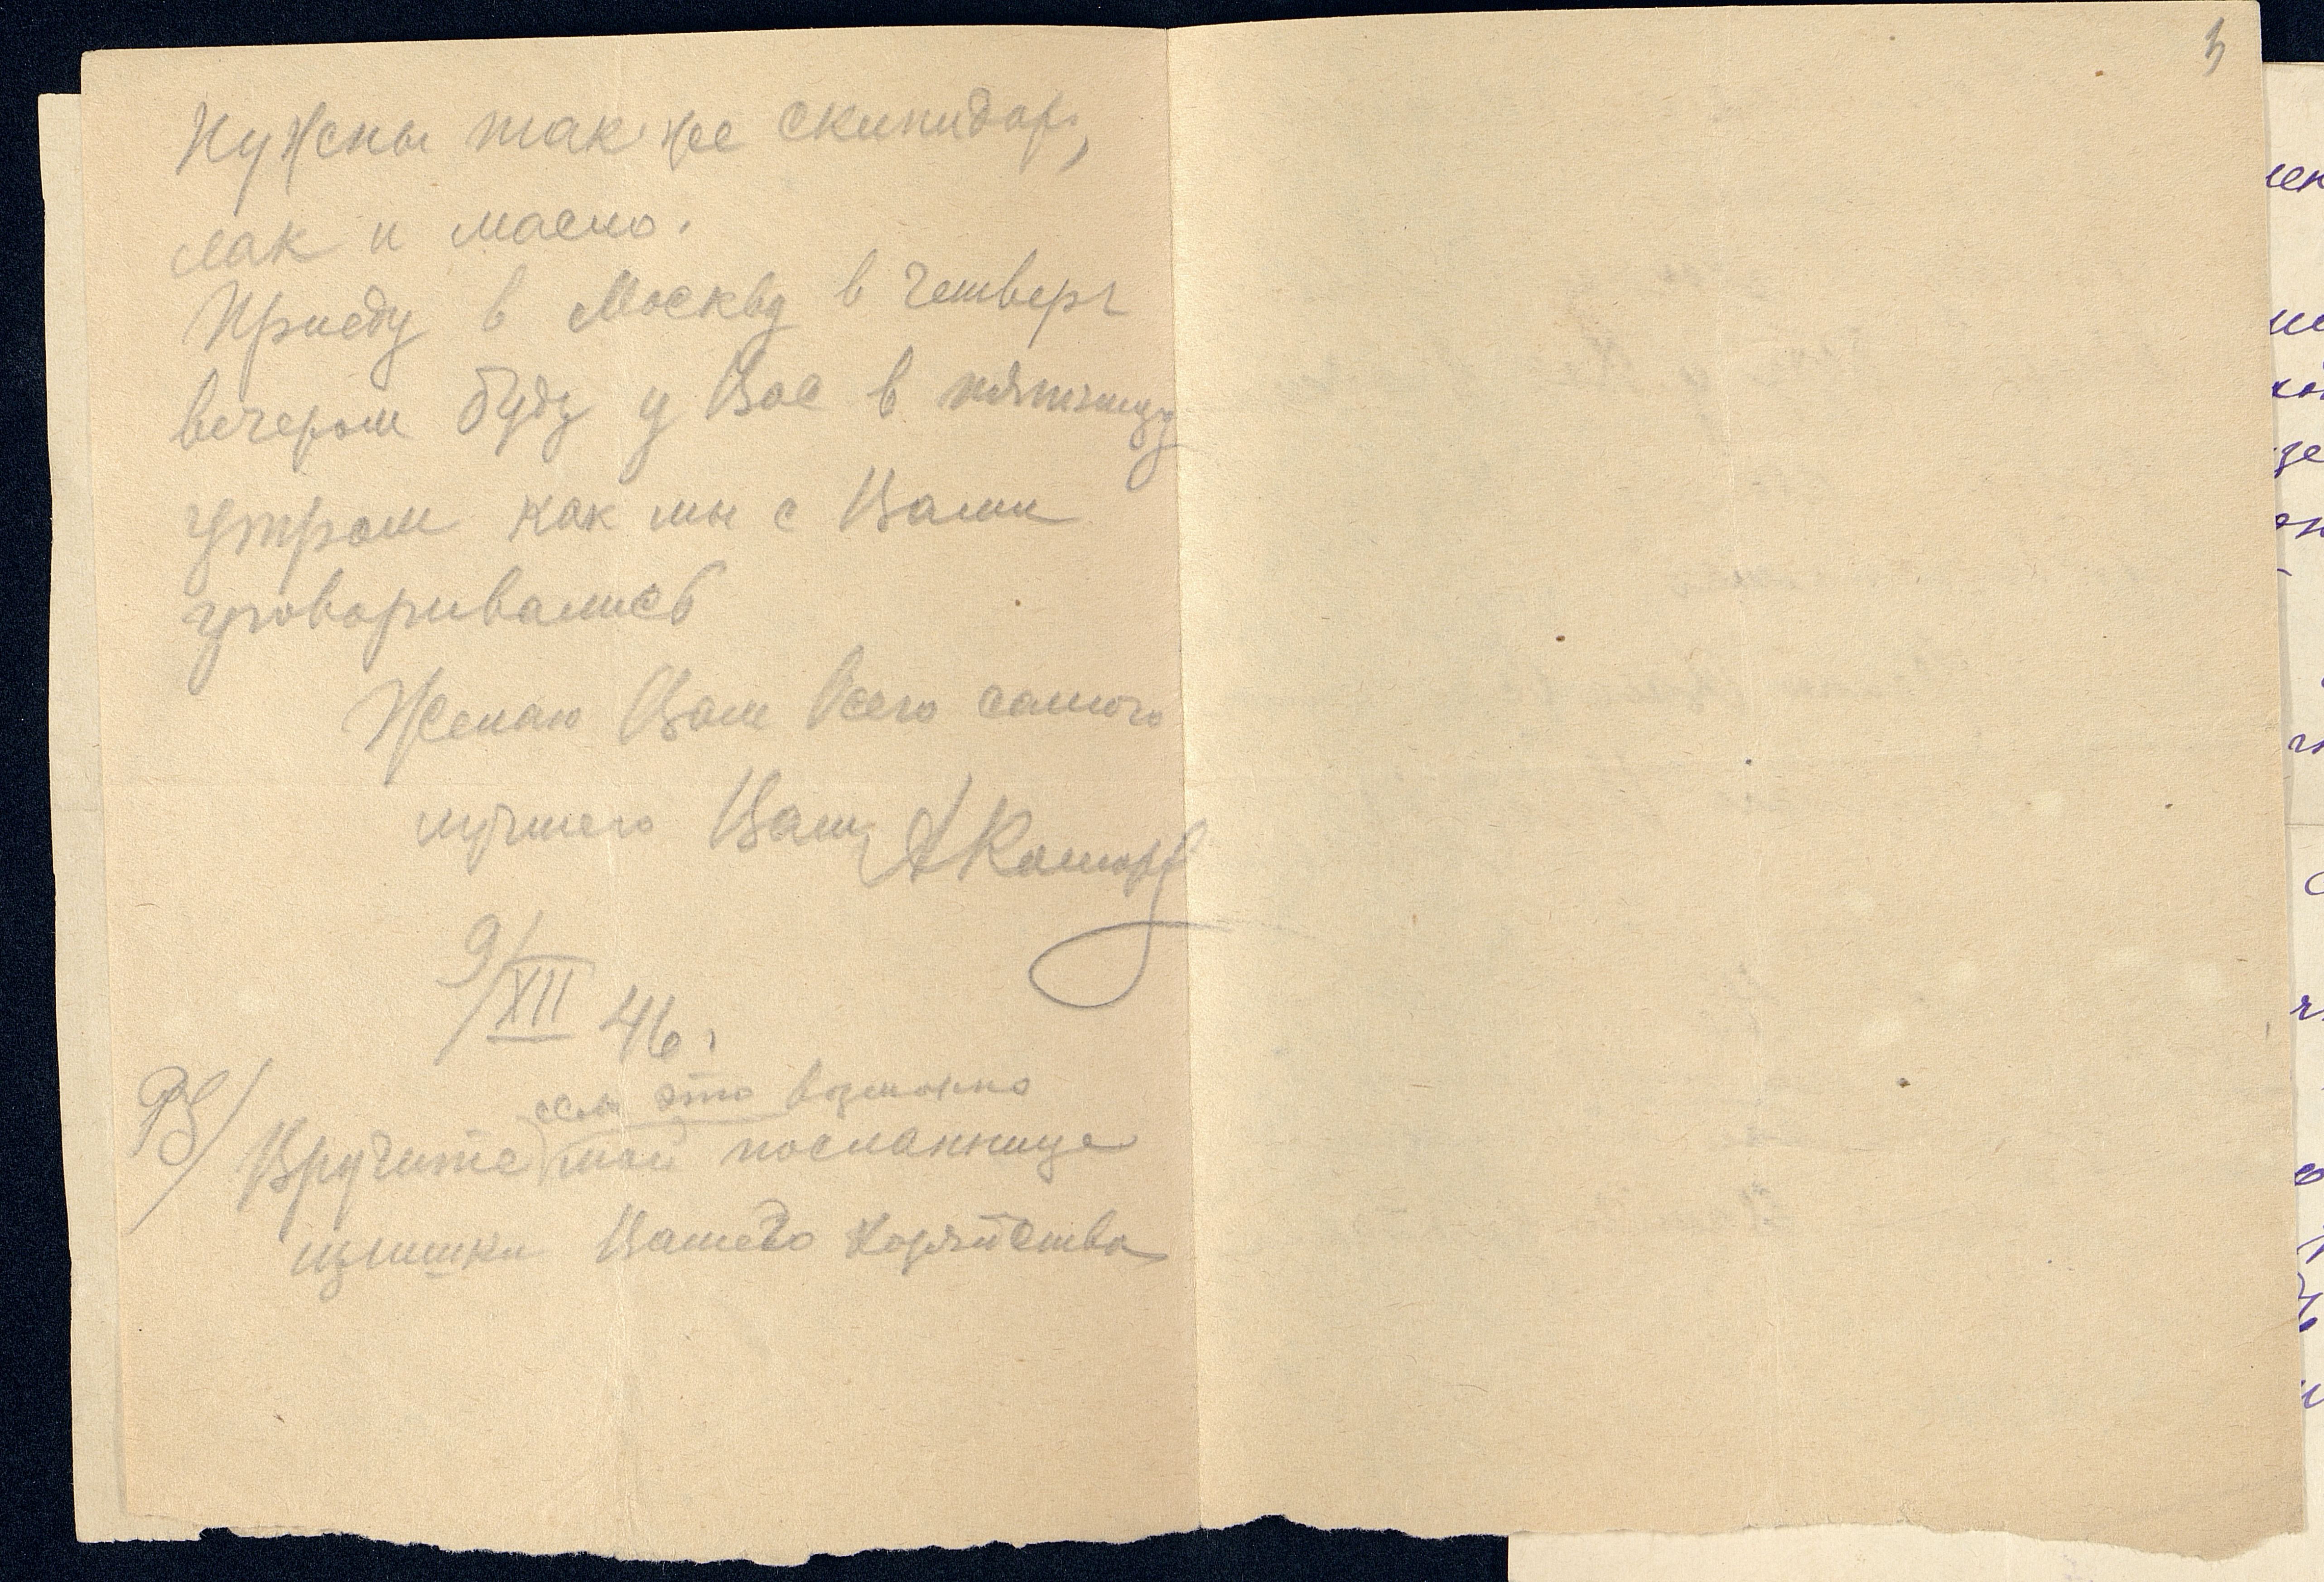 Нужны так же скипидар,
лак и масло.
Приеду в Москву в четверг
вечером буду у Вас в пятницу
утром как мы с Вами
уговаривались
Желаю Вам всего самого
лучшего Ваш
9/XII 46.
PS/
если это возможно
Вручите моей посланнице
излишки Вашего хозяйства